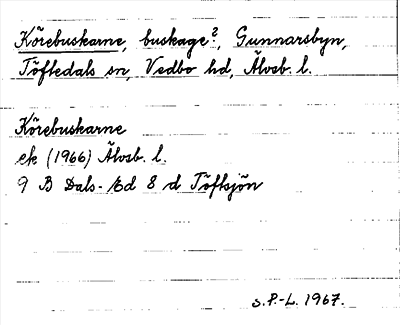 Körebuskarne, buskage?, Gunnarsbyn,
Töftedals sn, Vedbo hd, Älvsb. l.
Körebuskarne
ek (1966) Älvsb. l.
9 B Dals-Ed 8 d Töftsjön
s.P.-L. 1967.